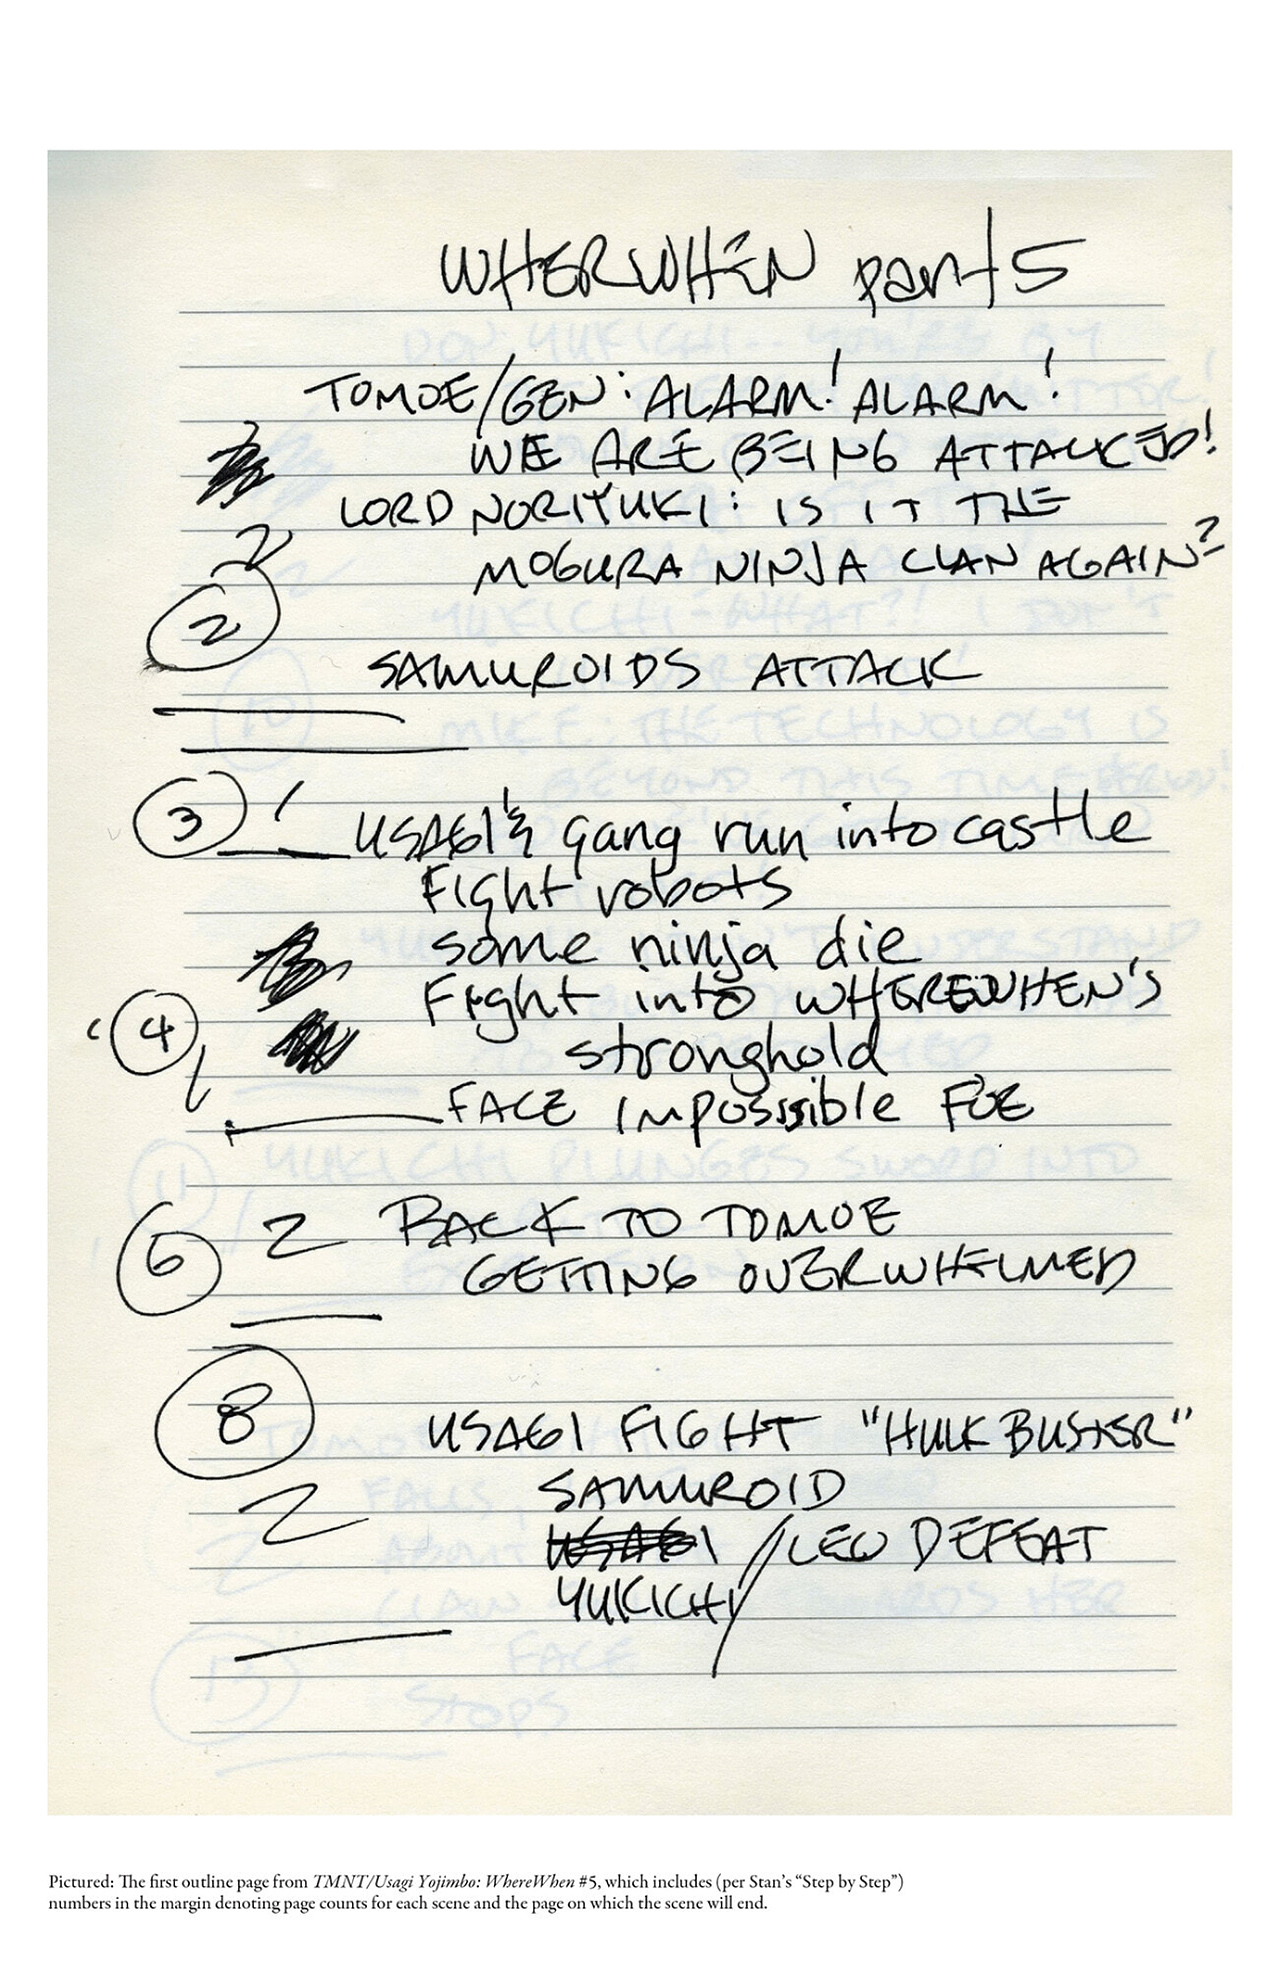 WHERWHEN part 5
TOMOE/GEN: ALARM! ALARM!
WE ARE BEING ATTACKED!
LORD NORIYUKI: IS IT THE
MOGURA NINJA CLAN AGAIN?
2
2
SAMUROIDS ATTACK
3 1 USAGI'S gang run into castle
Fight robots
some ninja die
Fight into WHEREWHEN'S
4
stronghold
1
FACE Impossible FOE
6 2 BACK TO TOMOE
GETTING OVERWHELMED
8
USAGI FIGHT "HULK BUSTER"
2 SAMUROID
USAGI / LEO DEFEAT
YUKICHI
Pictured: The first outline page from TMNT/Usagi Yojimbo: WhereWhen #5, which includes (per Stan's “Step by Step”)
numbers in the margin denoting page counts for each scene and the page on which the scene will end.